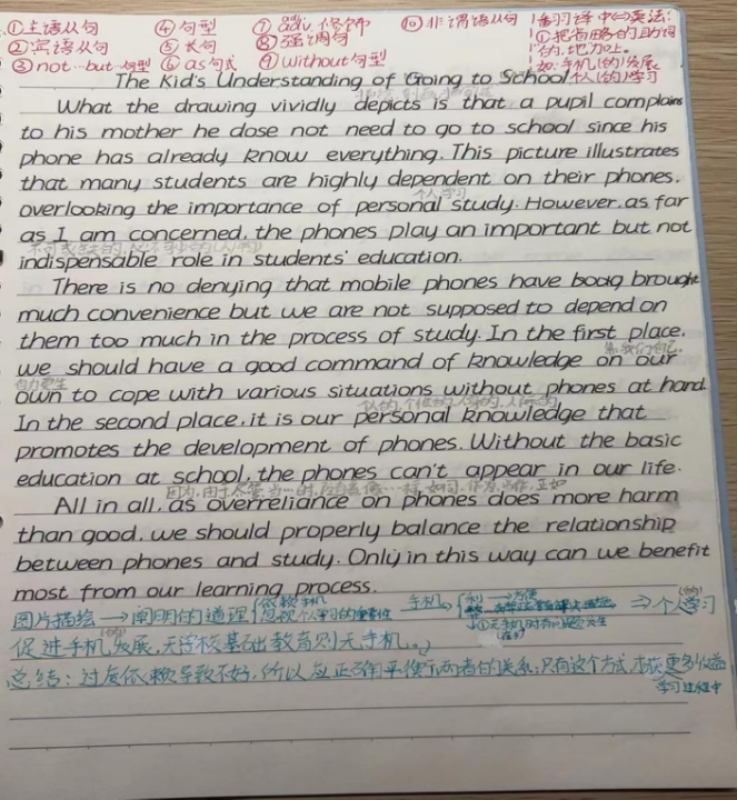 ①主语从句 ④句型 ⑦adv.修饰 ⑩非谓语从句 翻译中⇔英法:
②宾语从句 ⑤长句 ⑧强调句 ①把省略的助词
③not…but…句型 ⑥as句式 ⑨without句型 的.地加上。
如:手机(的)发展
The Kid's Understanding of Going to School 个人(的)学习
What the drawing vividly depicts is that a pupil complains
to his mother he dose not need to go to school since his
phone has already know everything. This picture illustrates
that many students are highly dependent on their phones.
个人学习
overlooking the importance of personal study. However, as far
as I am concerned, the phones play an important but not
indispensable role in students' education.
There is no denying that mobile phones have brought
much convenience but we are not supposed to depend on
them too much in the process of study. In the first place,
we should have a good command of knowledge on our
自力更生
own to cope with various situations without phones at hand.
In the second place, it is our personal knowledge that
promotes the development of phones. Without the basic
education at school, the phones can't appear in our life.
All in all, as overreliance on phones does more harm
than good, we should properly balance the relationship
between phones and study. Only in this way can we benefit
most from our learning process.
图片描绘→阐明的道理 依赖手机 手机 利→方便 ⇒个人(的)学习
忽视个人学习的重要性
促进手机(的)发展,无学校基础教育则无手机。
总结:过度依赖导致不好,所以应正确平衡两者的关系;只有这个方式,才能更多收益
学习过程中